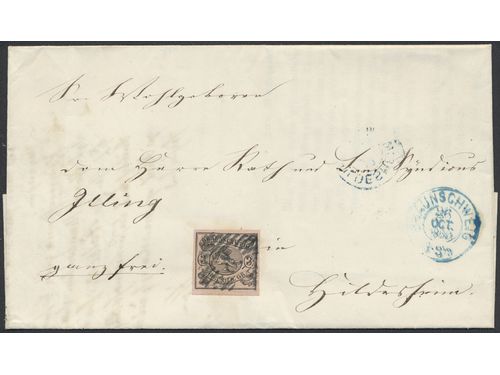 Sr Wohlgeboren
dem Herrn Rath und Land Syndicus
Illing
in
ganz frei.
Hildesheim.
BRAUNSCHWEIG
OCT